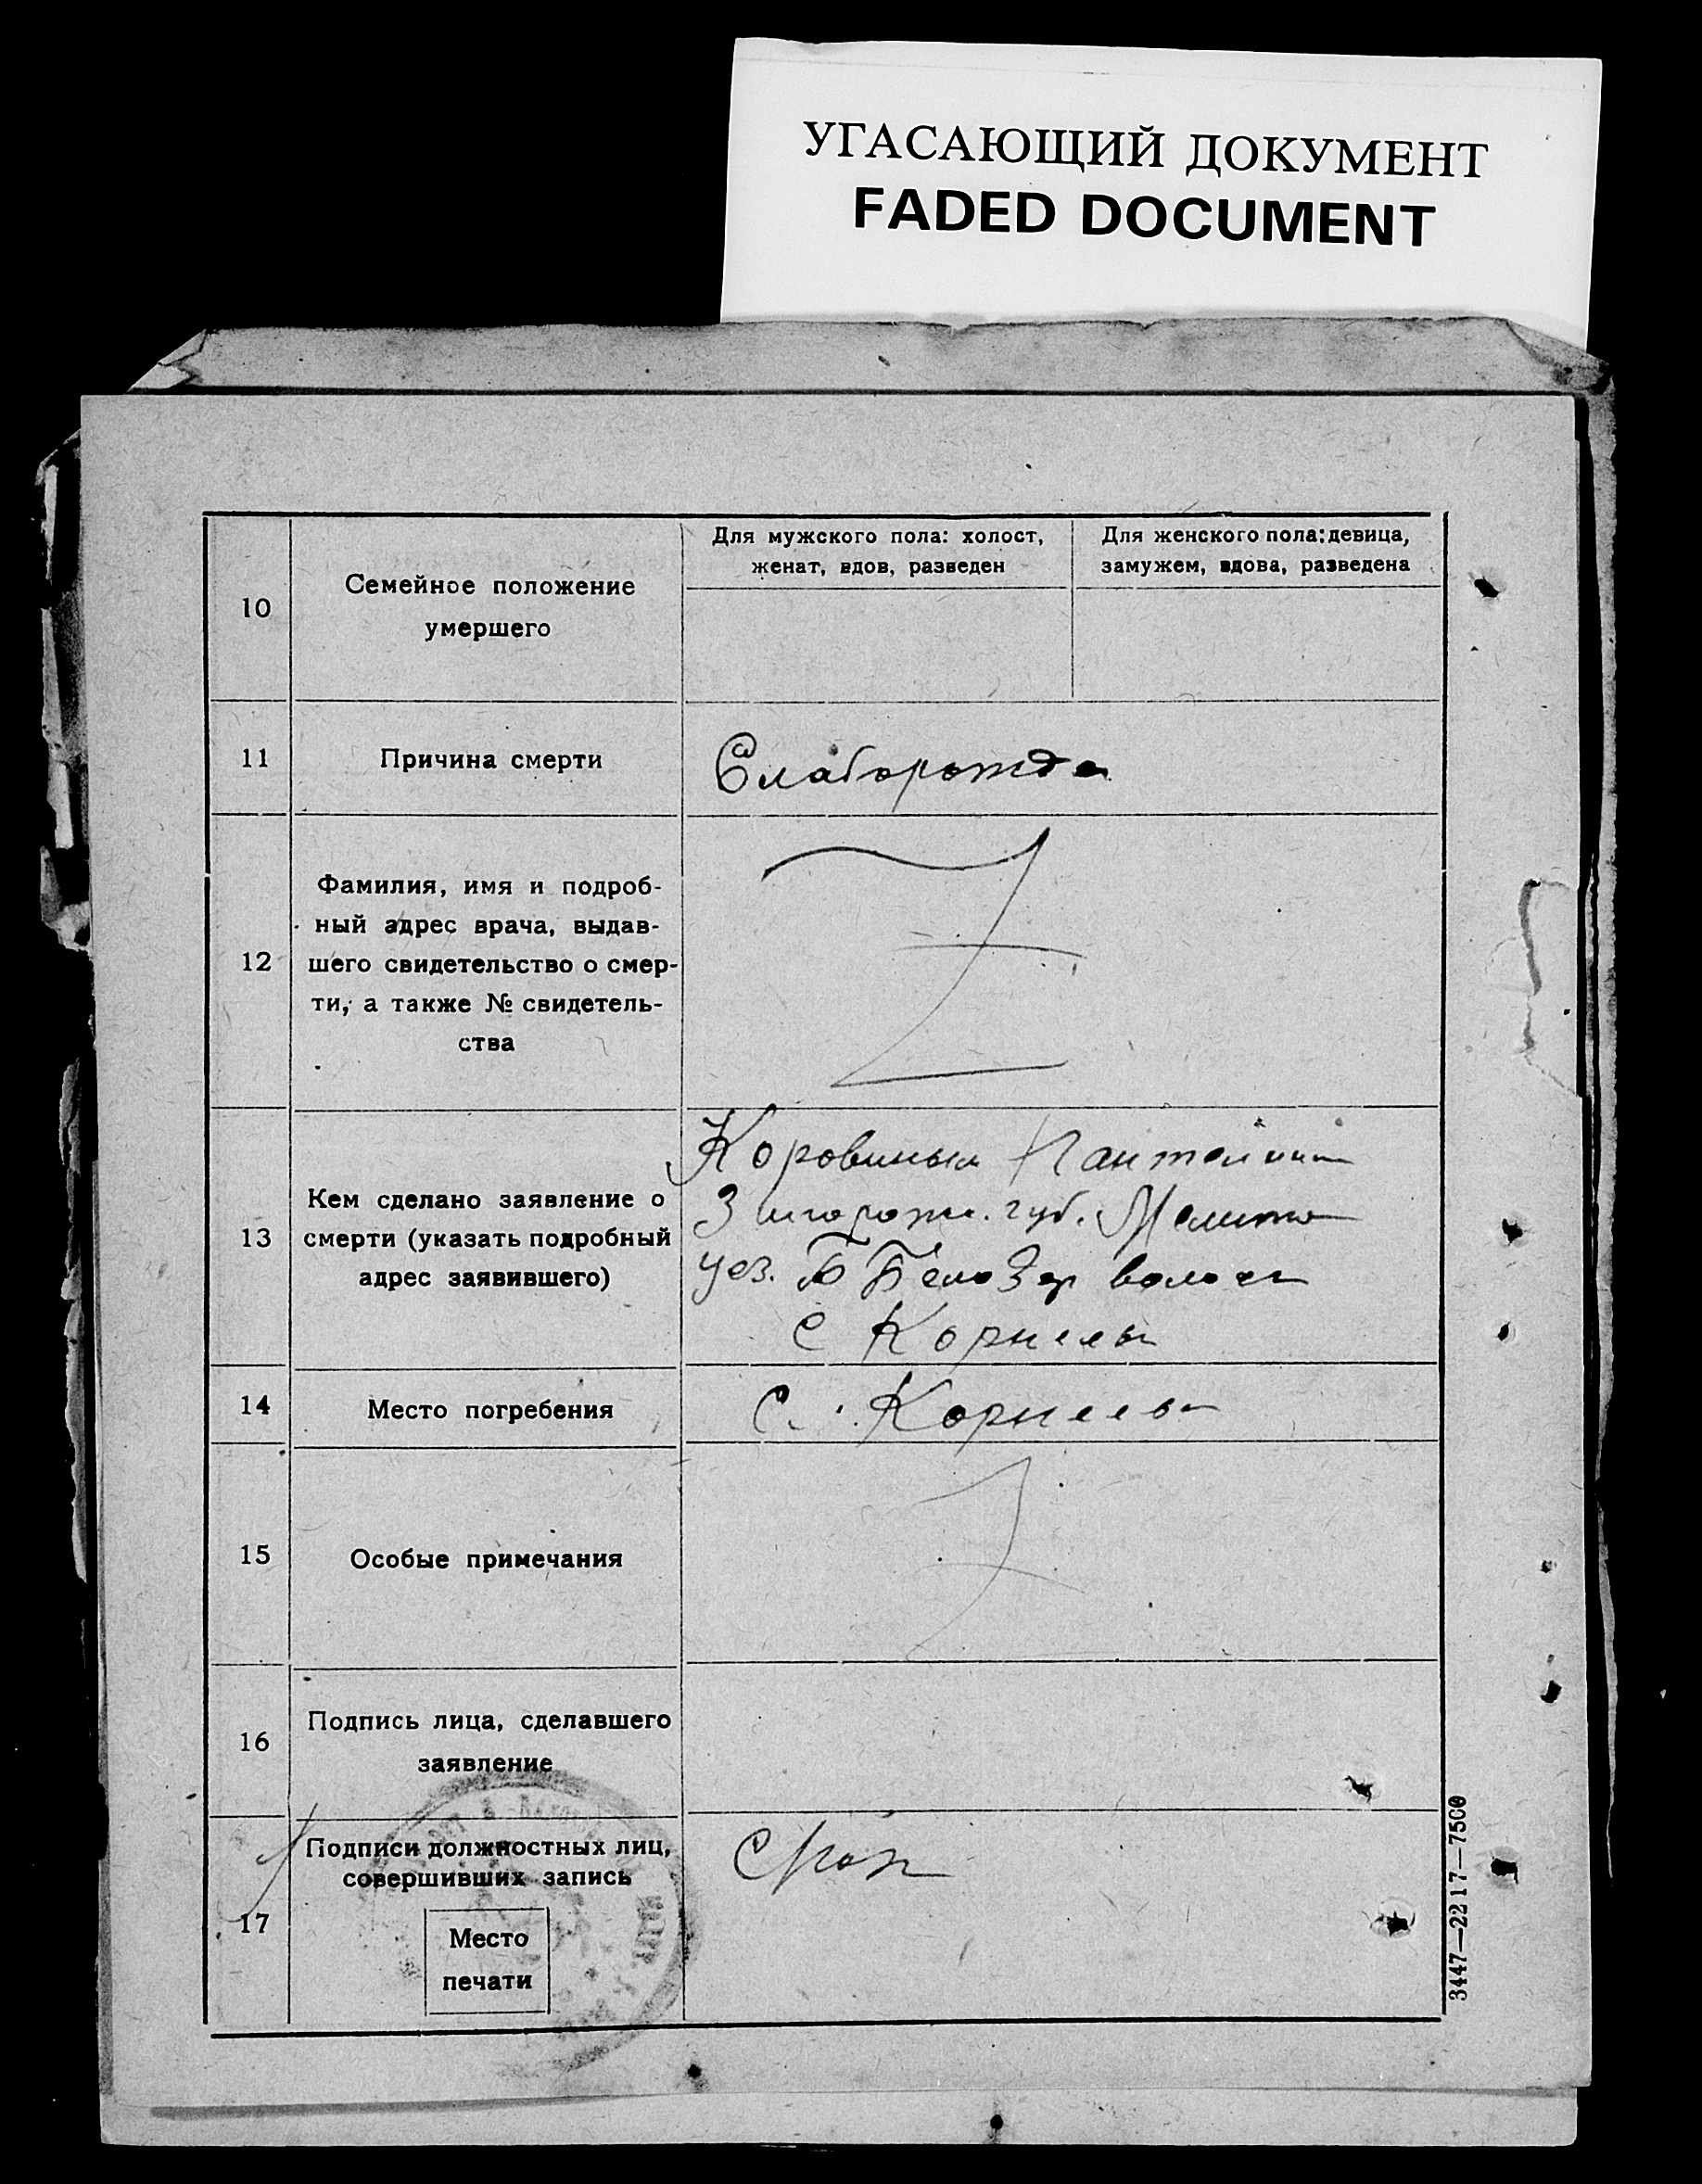 УГАСАЮЩИЙ ДОКУМЕНТ
FADED DOCUMENT
10
Семейное положение
умершего
Для мужского пола: холост,
женат, вдов, разведен
Для женского пола: девица,
замужем, вдова, разведена
11
Причина смерти
Слаборожде
12
Фамилия, имя и подроб-
ный адрес врача, выдав-
шего свидетельство о смер-
ти, а также № свидетель-
ства
13
Кем сделано заявление о
смерти (указать подробный
адрес заявившего)
Коровиным
губ. Мелито
уез. Б БелоЗер волост
С Корнеев
14
Место погребения
С. Корнеев
15
Особые примечания
16
Подпись лица, сделавшего
заявление
17
Подписи должностных лиц,
совершивших запись
Место
печати
3447—2217—7500